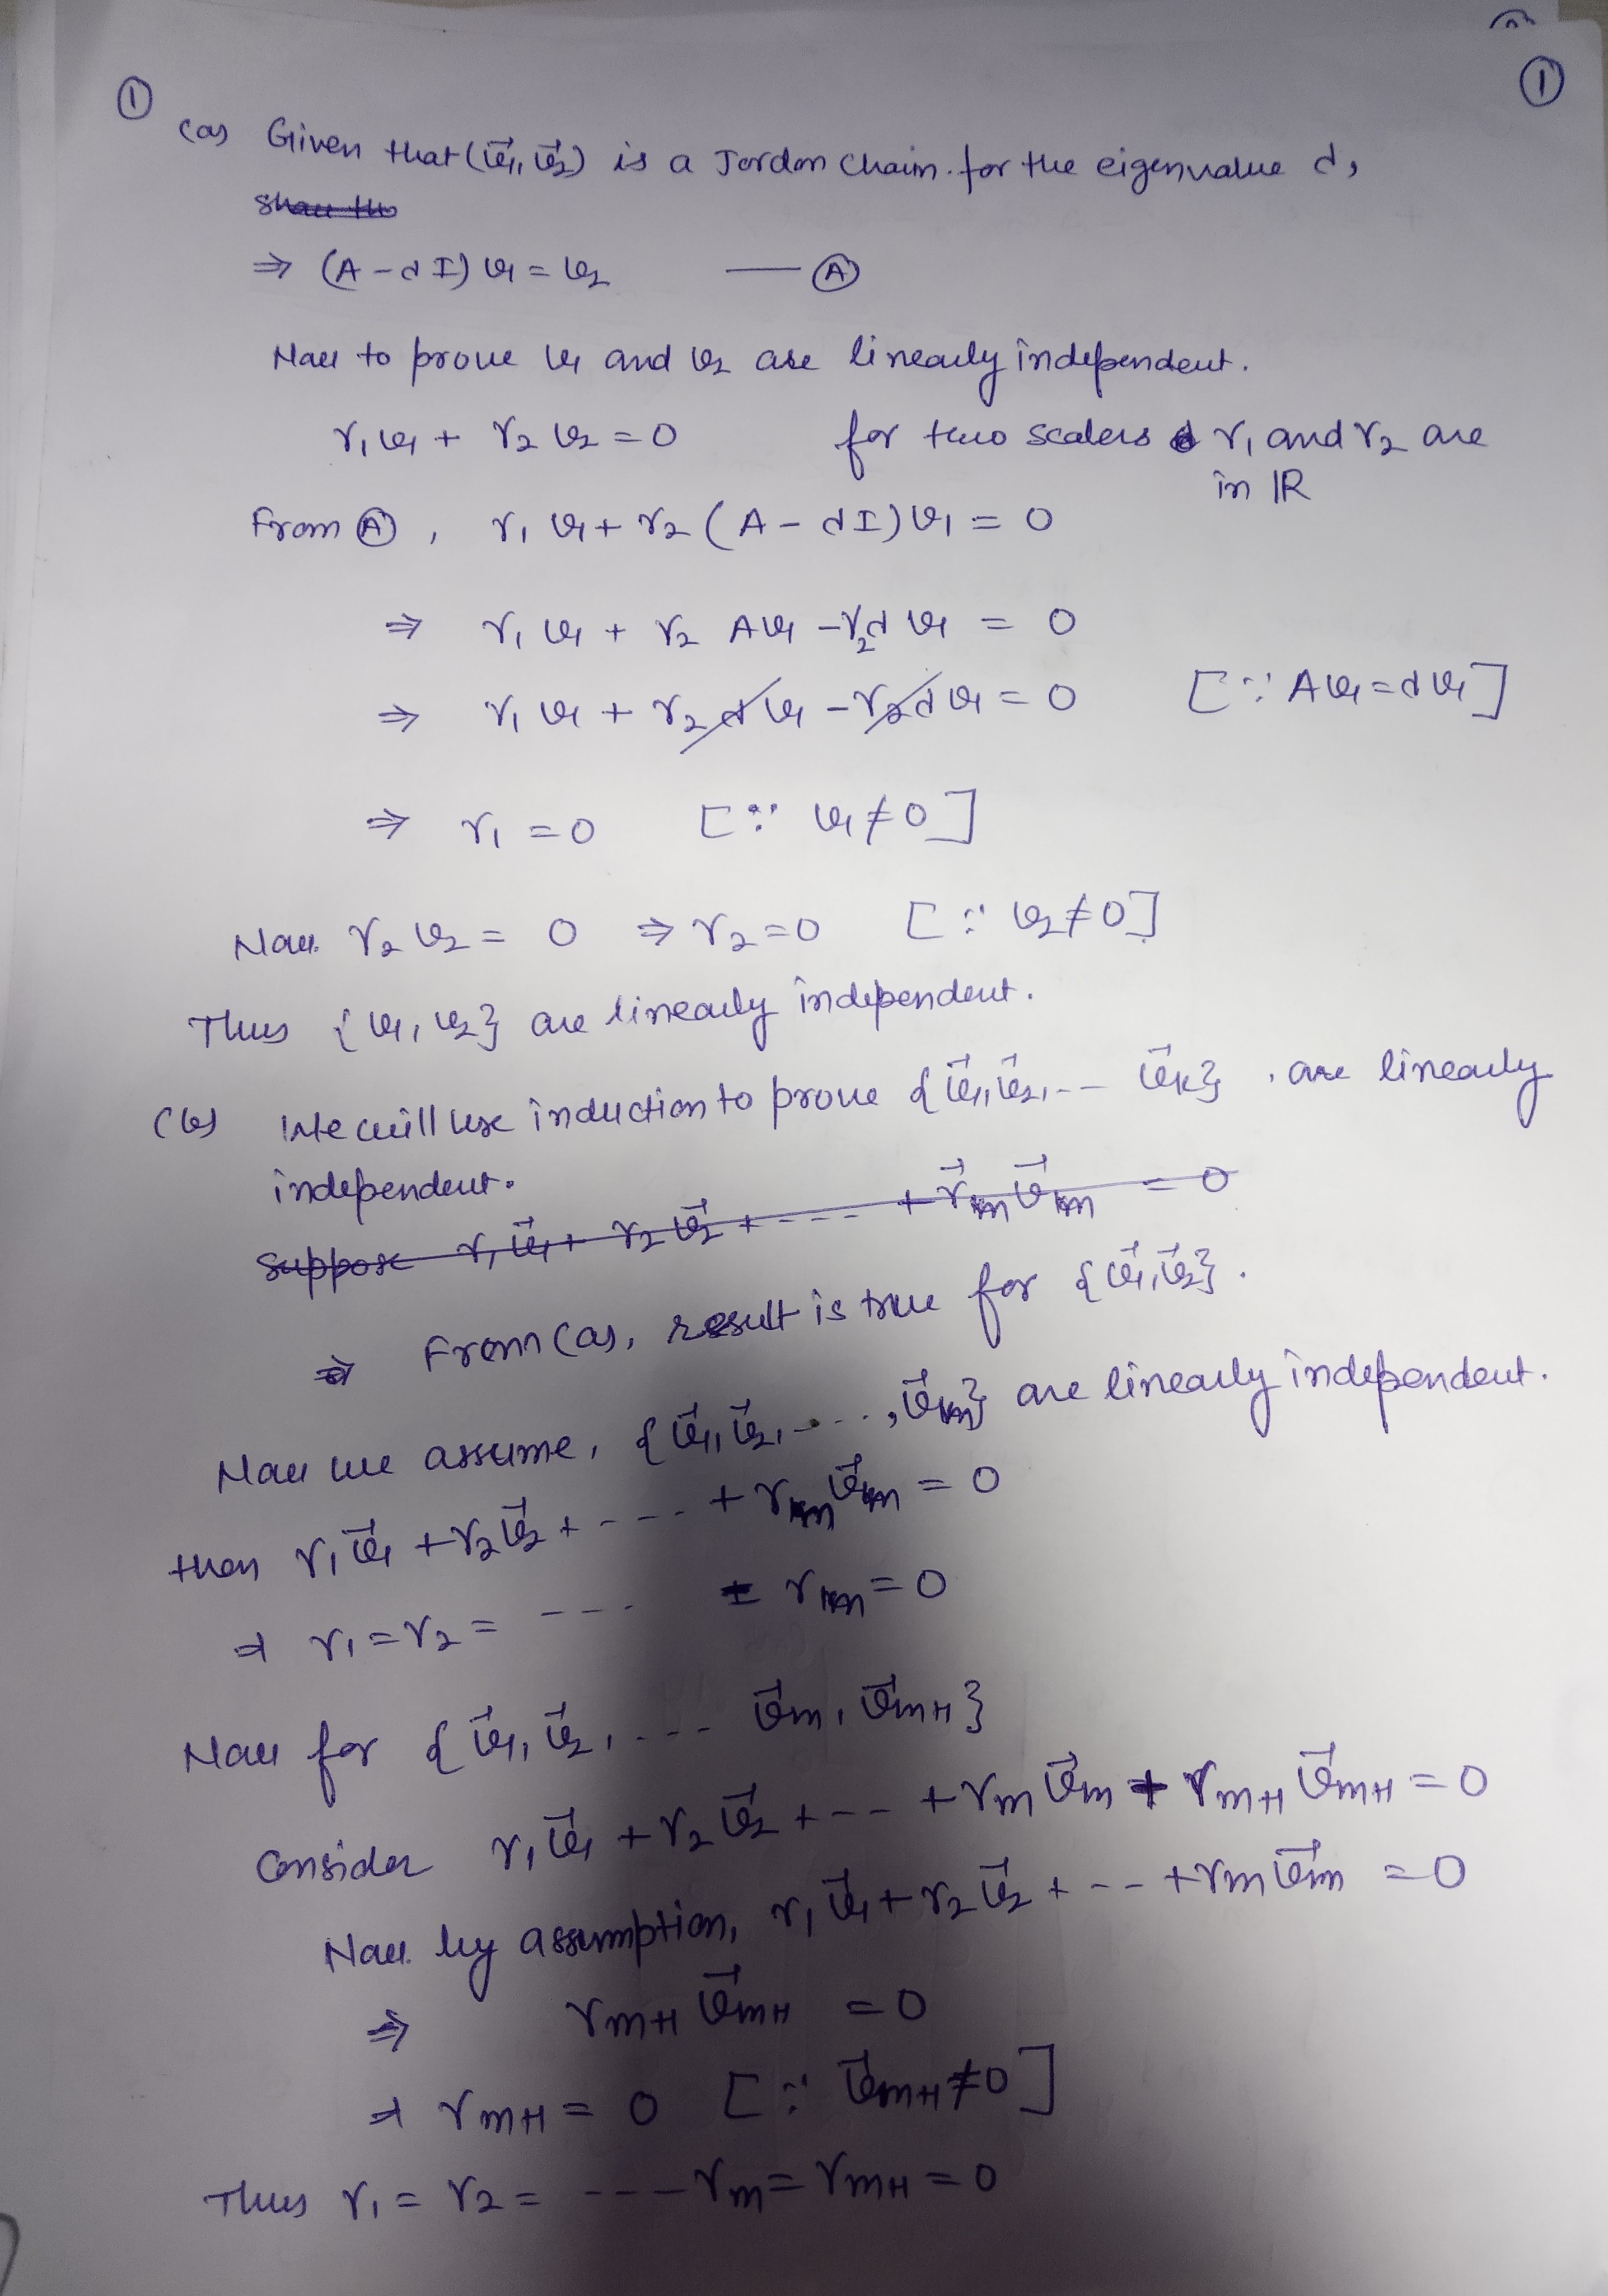 ①
①
(a) Given that (v⃗1, v⃗2) is a Jordon Chain for the eigenvalue d,
⇒ (A - dI) v1 = v2 —— Ⓐ
Now to prove v1 and v2 are linearly independent.
r1 v1 + r2 v2 = 0 for two scalers r1 and r2 are
in ℝ
From Ⓐ, r1 v1 + r2 (A - dI) v1 = 0
⇒ r1 v1 + r2 A v1 - r2 d v1 = 0
⇒ r1 v1 + r2 d v1 - r2 d v1 = 0 [∵ A v1 = d v1]
⇒ r1 = 0 [∵ v1 ≠ 0]
Now r2 v2 = 0 ⇒ r2 = 0 [∵ v2 ≠ 0]
Thus {v1, v2} are linearly independent.
(b) We will use induction to prove {v⃗1, v⃗2, -- v⃗k} are linearly
independent.
Suppose r1 v⃗1 + r2 v⃗2 + ---- + r⃗m v⃗m = 0
⇒ From (a), result is true for {v⃗1, v⃗2}.
Now we assume, {v⃗1, v⃗2, ...., v⃗m} are linearly independent.
then r1 v⃗1 + r2 v⃗2 + ---- + rm v⃗m = 0
⇒ r1 = r2 = --- = rm = 0
Now for {v⃗1, v⃗2, --- v⃗m, v⃗m+1}
Consider r1 v⃗1 + r2 v⃗2 + -- + rm v⃗m + rm+1 v⃗m+1 = 0
Now by assumption, r1 v⃗1 + r2 v⃗2 + -- + rm v⃗m = 0
⇒ rm+1 v⃗m+1 = 0
⇒ rm+1 = 0 [∵ v⃗m+1 ≠ 0]
Thus r1 = r2 = --- rm = rm+1 = 0